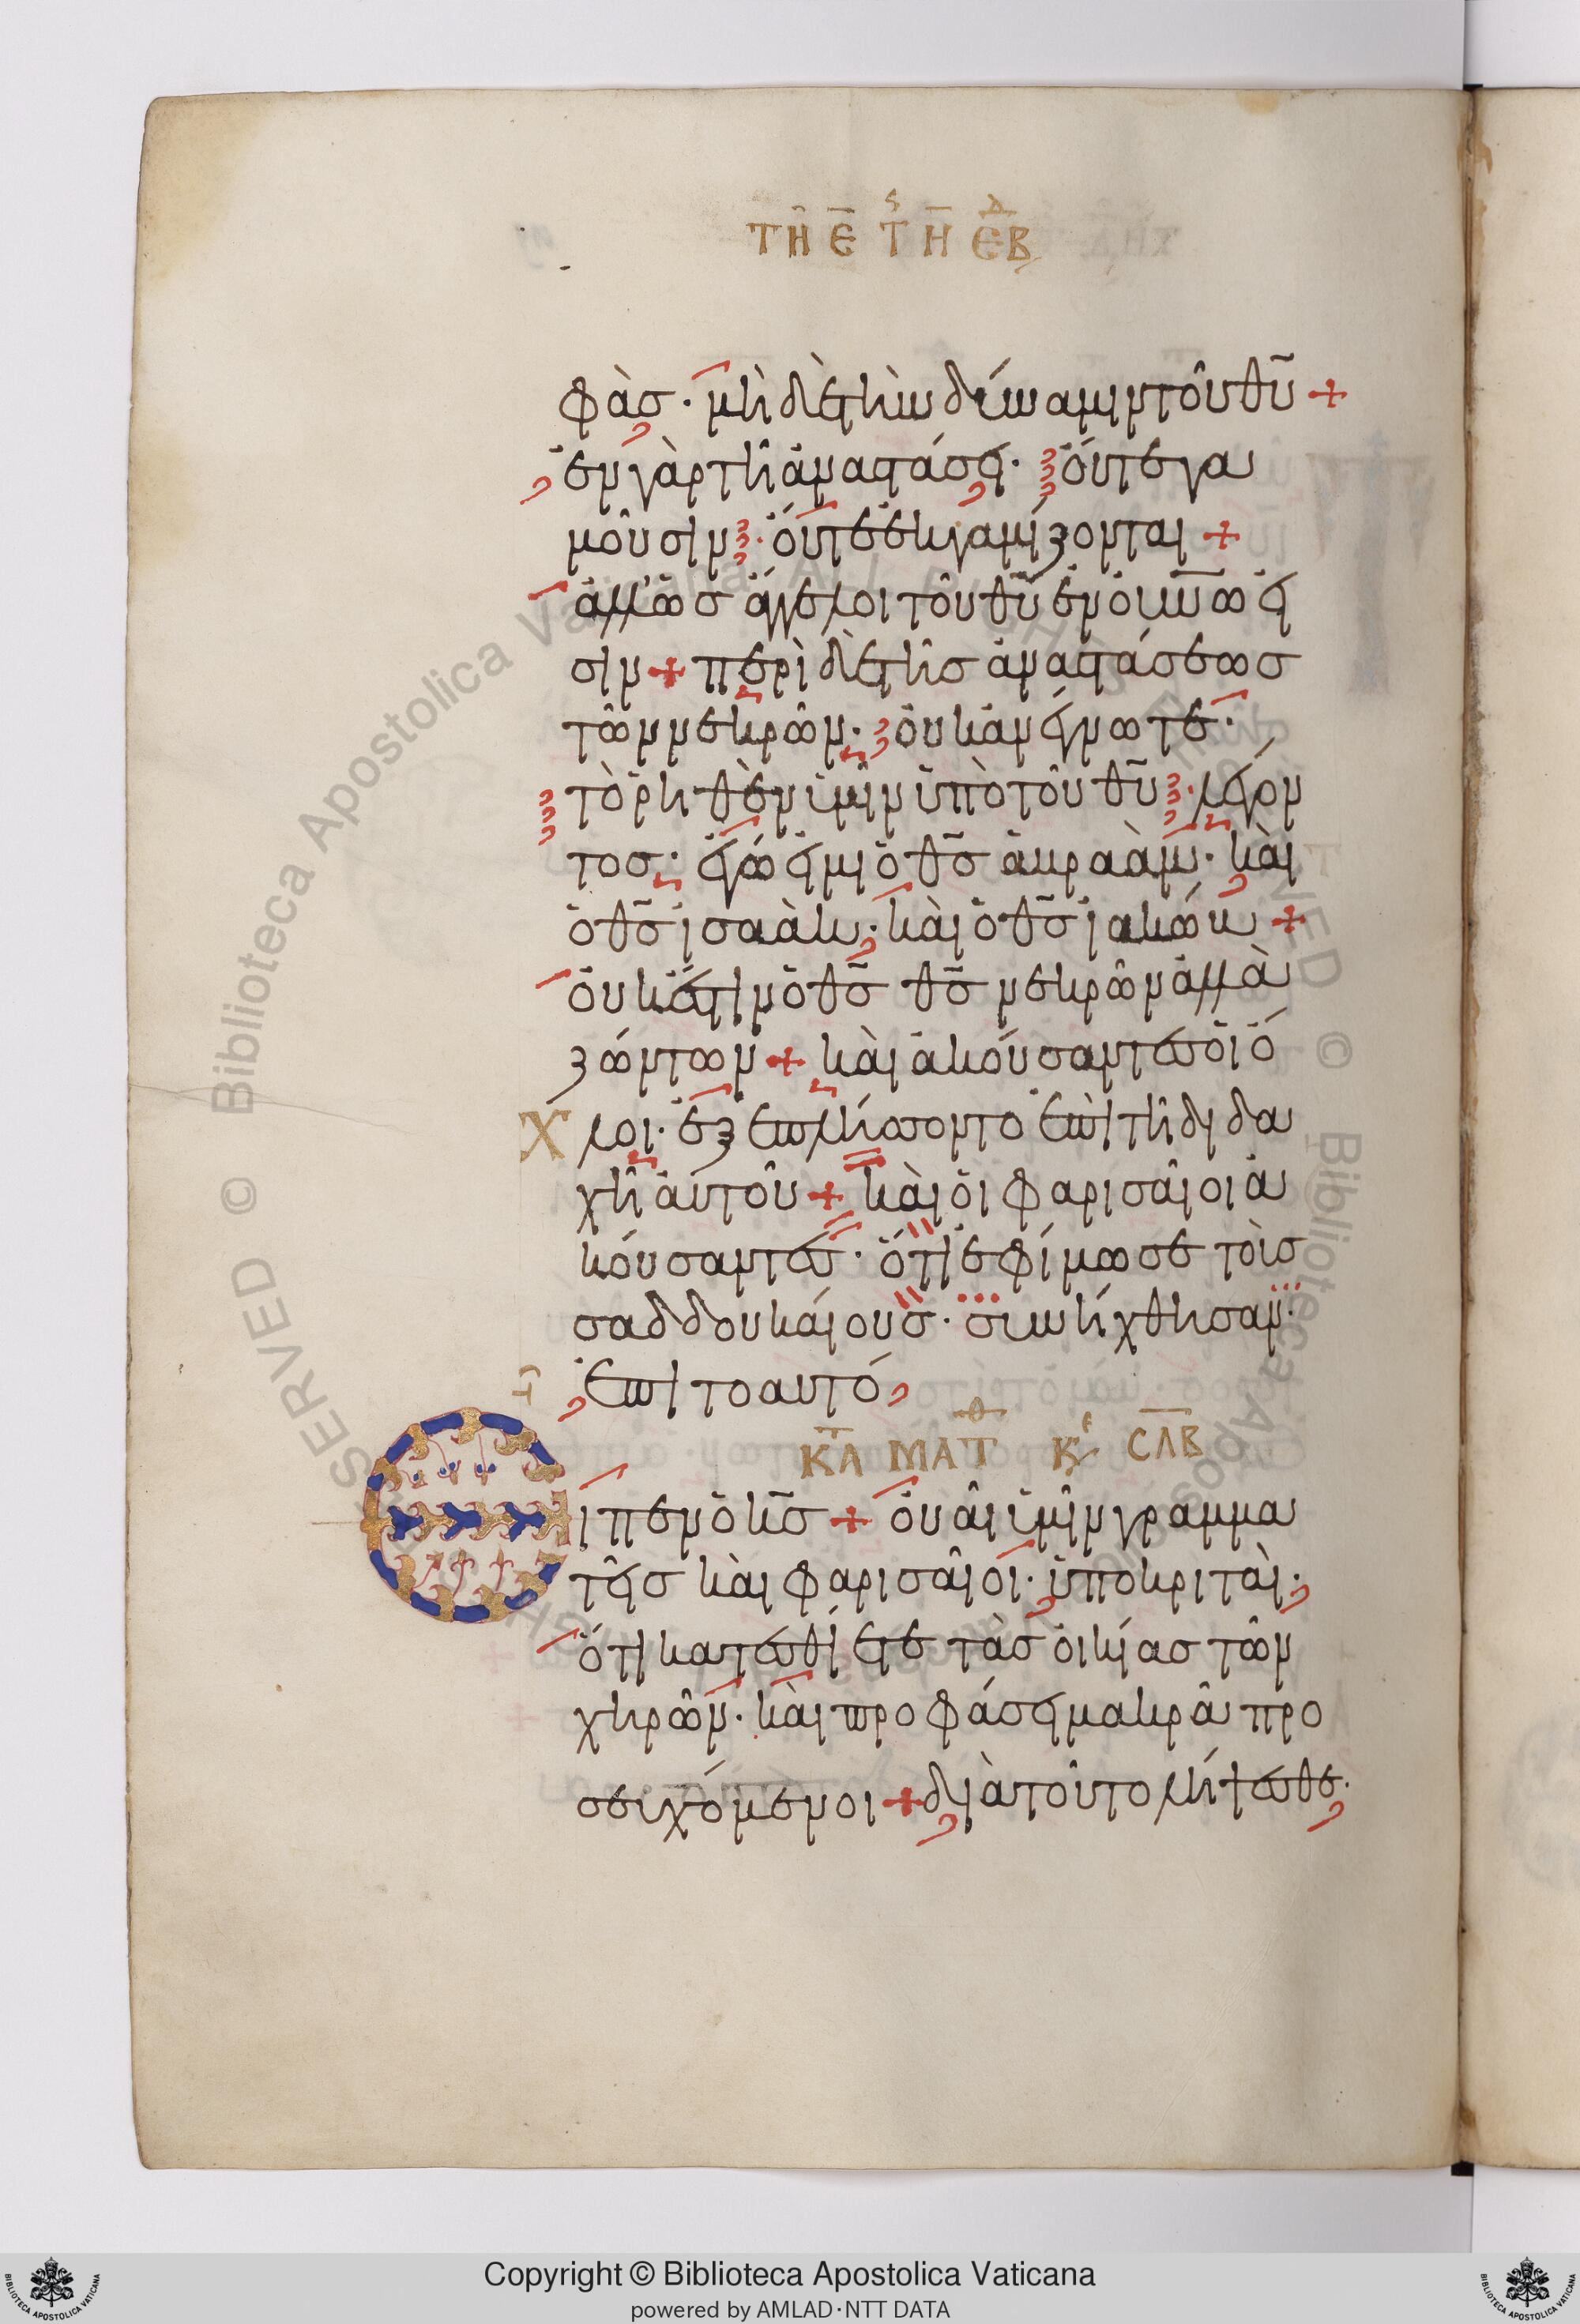 ΤΗ Ε ΤΗϚ ΗΕΒΔ
φὰσ· μὴ δὲ τὴν δύναμιν τοῦ θυ +
ἐν γὰρ τῆ ἀναστάσει· ὄυτε γα
μοῦσιν· ὄυτε ἐκγαμίζονται +
ἀλλ' ὡσ ἄγγελοι τοῦ θυ ἐν ὀυνω εἰ
σιν + περὶ δὲ τῆσ ἀναστάσεωσ
τῶν νεκρῶν· ὀυκ ἀνέγνωτε·
τὸ ῥηθὲν ὑμῖν ὑπὸ τοῦ θυ· λέγον
τοσ· ἐγώ εἰμι ὁ θσ ἀβραὰμ· κὰι
ὁ θσ ἰσαὰκ· κὰι ὁ θσ ἰακώβ +
ὀυκ ἔστιν ὁ θσ θσ νεκρῶν ἀλλὰ
ζώντων + κὰι ἀκούσαντεσ ὁι ὄ
χλοι· ἐξεπλήσσοντο ἐπὶ τῆ διδα
χῆ ἀυτοῦ + κὰι ὁι φαρισᾶιοι ἀ
κούσαντεσ· ὅτι ἐφίμωσε τοὺσ
σαδδουκάιουσ· συνήχθησαν·
ἐπι το αυτό
Κ Τ Λ ΜΑΤΘ Κ Ε ΣΛΒ
Ειπεν ὁ κσ + ὀυᾶι ὑμῖν γραμμα
τεῖσ κὰι φαρισᾶιοι· ὑποκριτὰι·
ὅτι κατεσθίετε τὰσ ὀικίασ τῶν
χηρῶν· κὰι προφάσει μακρᾶ προ
σευχόμενοι + διὰ τοῦτο λήψεσθε·
Copyright © Biblioteca Apostolica Vaticana
powered by AMLAD·NTT DATA